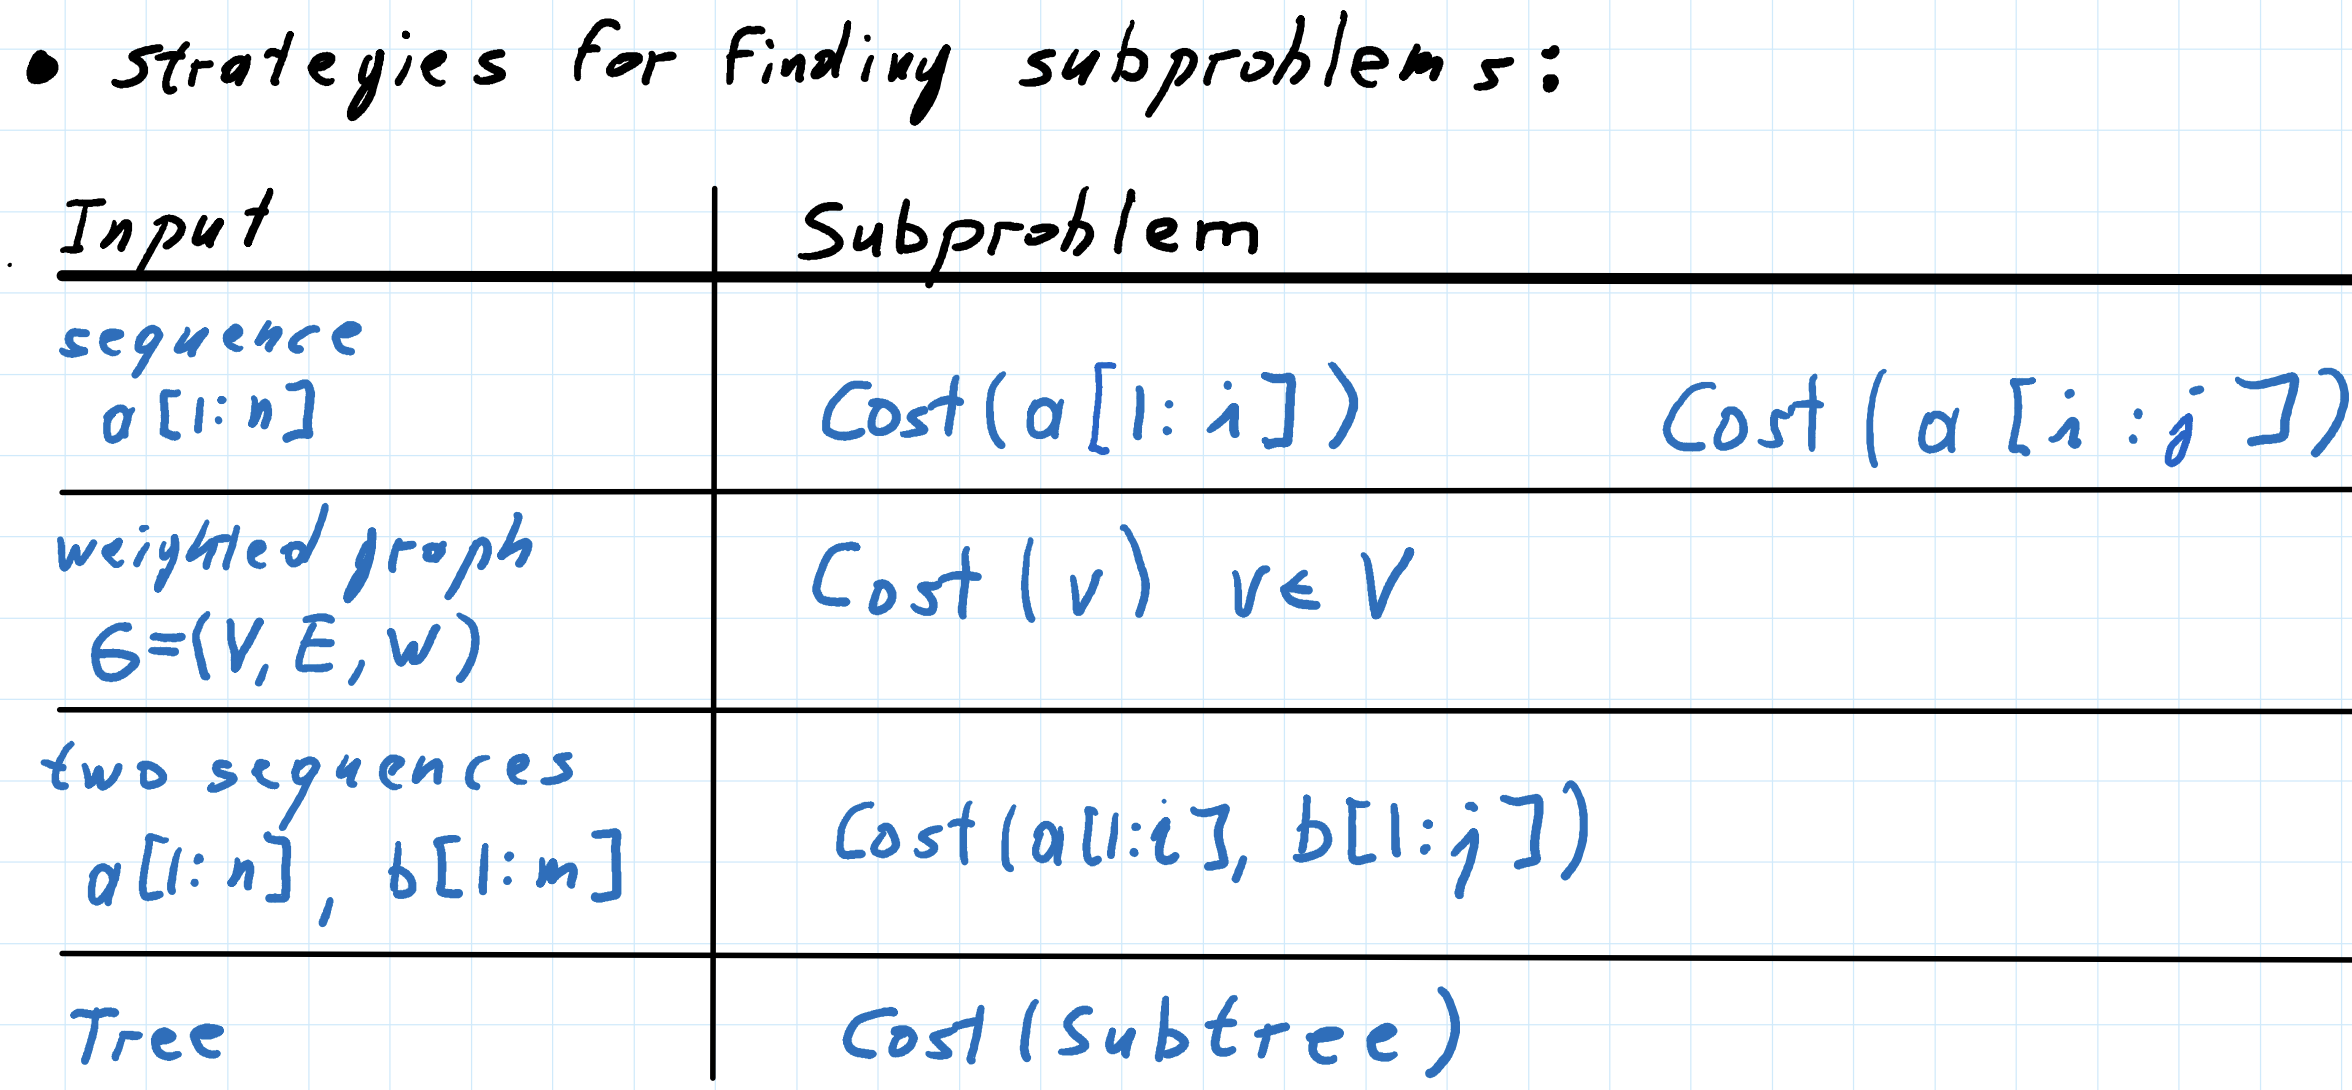 • strategies for finding subproblems:
Input Subproblem
sequence
a[1:n] Cost(a[1:i]) Cost(a[i:j])
weighted graph
G=(V,E,w) Cost(v) v∈V
two sequences
a[1:n], b[1:m] Cost(a[1:i], b[1:j])
Tree Cost(Subtree)